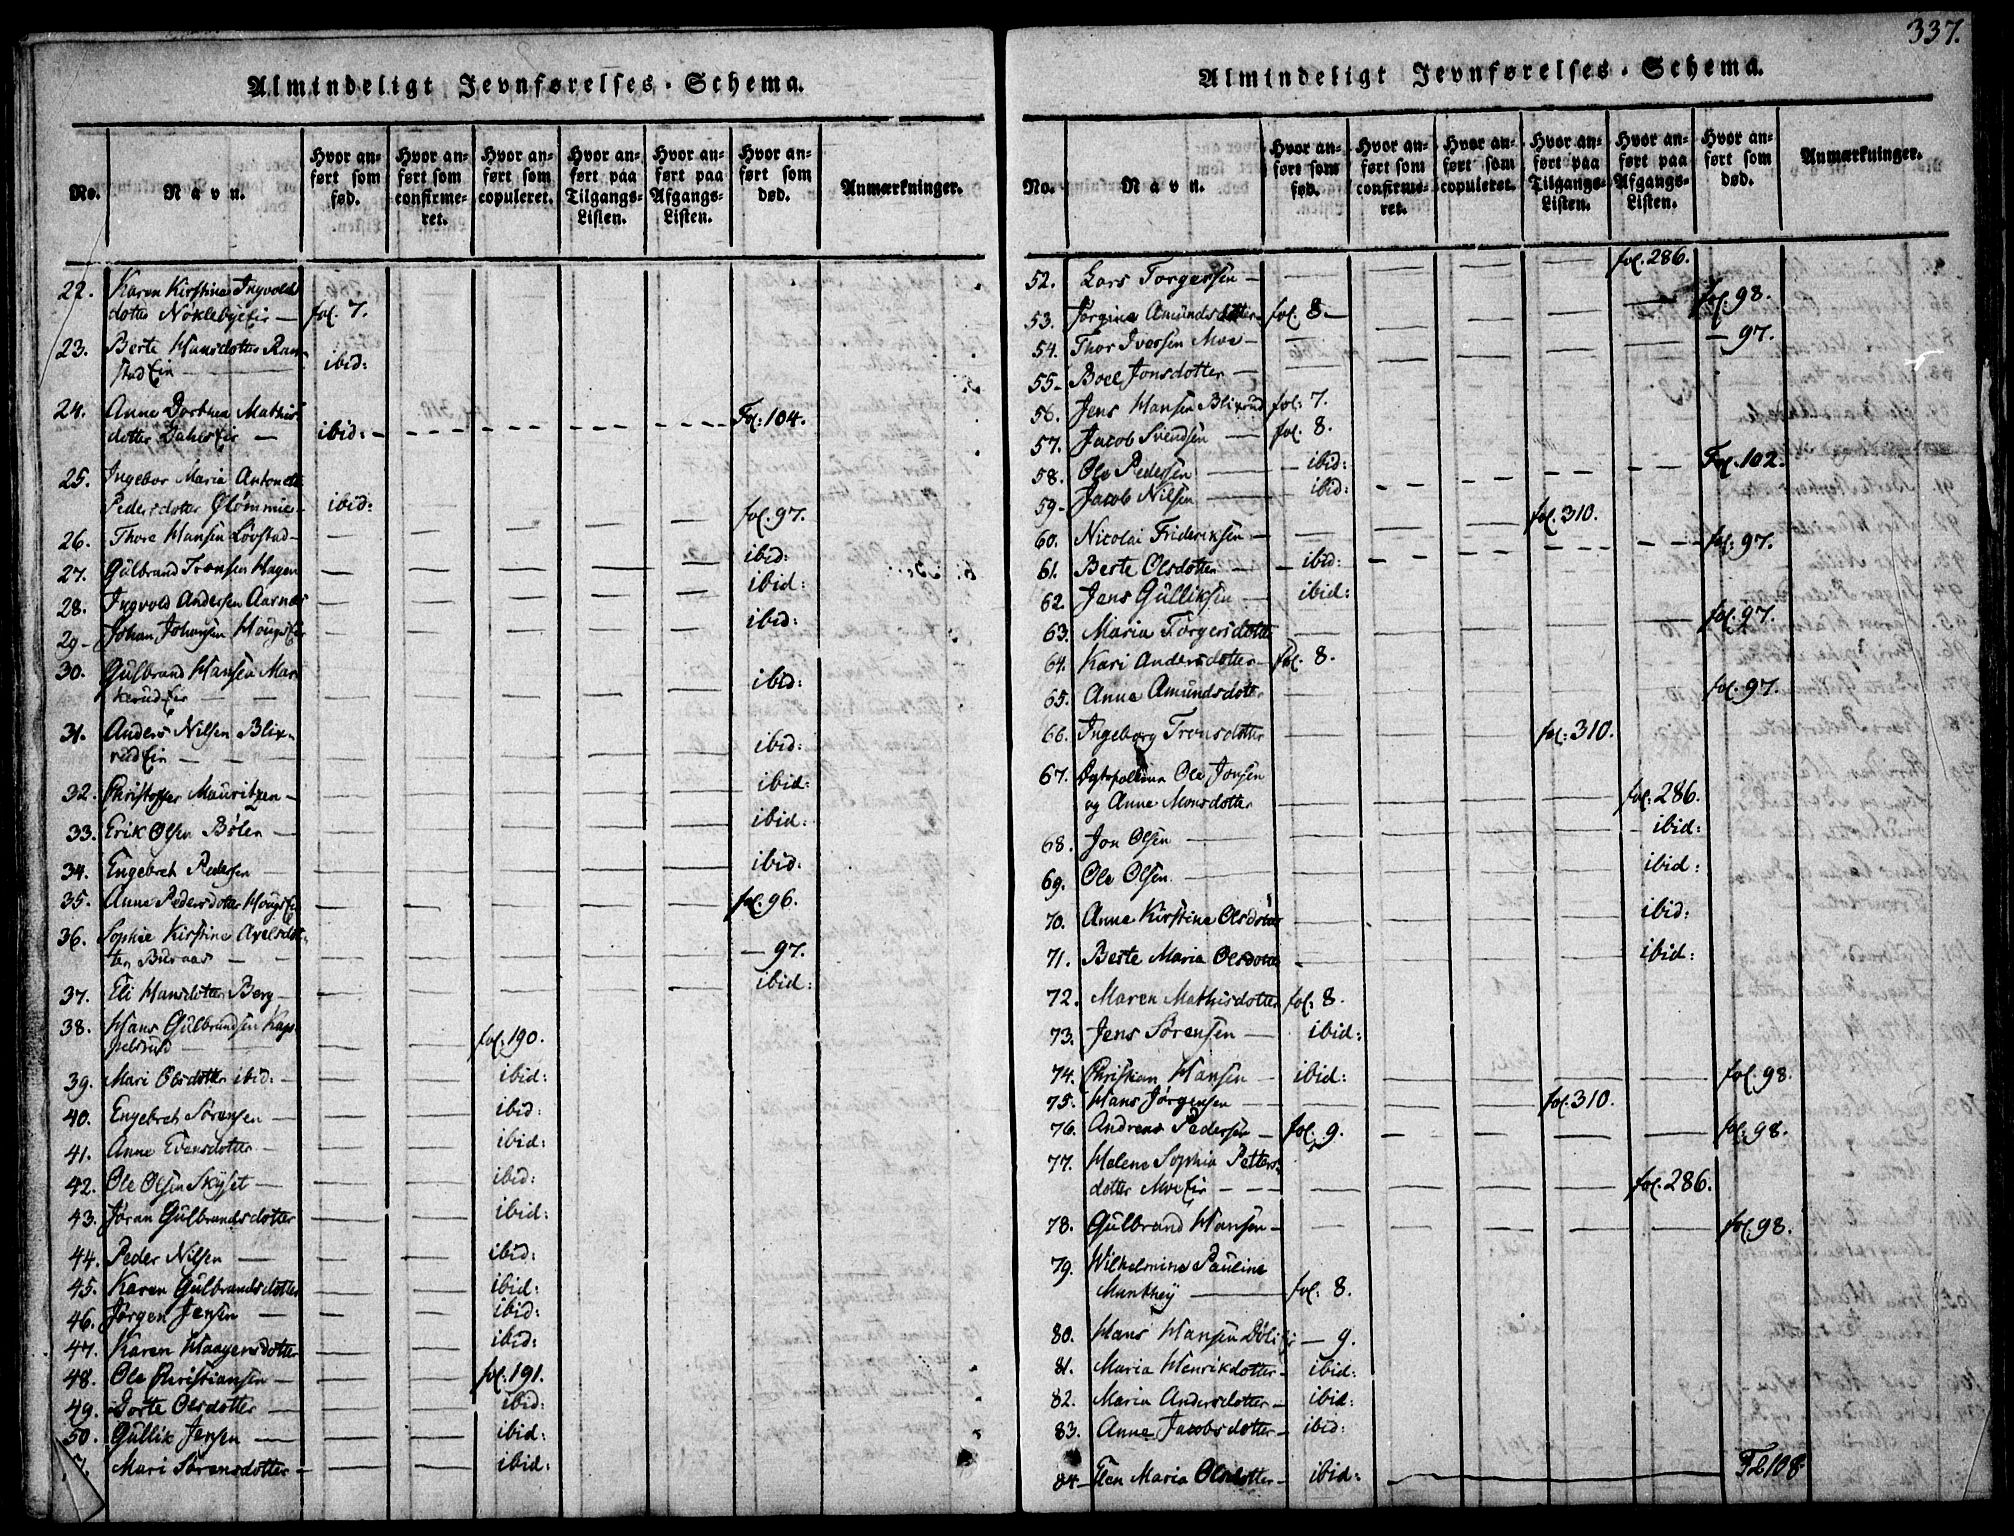 337.
Almindeligt Jevnførelses-Schema.
No. Navn. Hvor anført som fød. Hvor anført som confirmeret. Hvor anført som copuleret. Hvor anført paa Tilgangs-Listen. Hvor anført paa Afgangs-Listen. Hvor anført som død. Anmærkninger.
22. Karen Kirstine Ingvolds
dotter Nöklebye Eir — fol. 7.
23. Berte Hansdotter Ram-
stad Ein — ibid:
24. Anne Dorthea Mathis
dotter Dahls Eir — ibid: Fol: 104.
25. Ingebor Maria Antonette
Pedersdotter Glömmie ibid:
26. Thore Hansen Lövstad — fol. 97.
27. Gülbrand Tronsen Hagen ibid:
28. Ingvold Andersen Aarnæs ibid:
29. Johan Johansen Hougs Eir ibid:
30. Gülbrand Hansen Mar
kerud Eir — ibid:
31. Anders Nilsen Blix-
rüd Ein — ibid:
32. Christoffer Mauritzen — ibid:
33. Erik Olsen Bölen — ibid:
34. Engebret Pedersen — ibid:
35. Anne Pedersdotter Hougs Ein fol. 96.
36. Sophie Kirstine Axelsdot-
ter Buraas — 97.
37. Eli Hansdotter Berg — ibid:
38. Hans Gülbrandsen Kap-
pelsrud fol. 190.
39. Mari Olsdotter ibid. — ibid:
40. Engebret Sörensen — ibid:
41. Anne Evensdotter — ibid:
42. Ole Olsen Skÿset — ibid:
43. Jöran Gülbrandsdotter ibid:
44. Peder Nilsen — ibid:
45. Karen Gülbrandsdotter ibid:
46. Jörgen Jensen — ibid:
47. Karen Haagensdotter ibid:
48. Ole Christiansen — fol. 191.
49. Dorte Olsdotter — ibid:
50. Güllik Jensen — ibid:
Mari Sörensdotter — ibid:
Almindeligt Jevnførelses-Schema.
No. Navn. Hvor anført som fød. Hvor anført som confirmeret. Hvor anført som copuleret. Hvor anført paa Tilgangs-Listen. Hvor anført paa Afgangs-Listen. Hvor anført som død. Anmærkninger.
52. Lars Torgersen — fol. 286.
53. Jörgine Amündsdotter fol. 8. — fol. 98.
54. Thor Iversen Moe — 97.
55. Boel Jonsdotter —
56. Jens Hansen Blixrüd fol: 7.
57. Jacob Svendsen — fol. 8.
58. Ole Pedersen — ibid:
59. Jacob Nilsen — ibid: Fol. 102.
60. Nicolai Frideriksen — fol. 310.
61. Berte Olsdotter — ibid: fol. 97.
62. Jens Gülliksen — ibid:
63. Maria Torgersdotter fol. 97.
64. Kari Andersdotter — fol. 8.
65. Anne Amündsdotter fol. 97.
66. Ingeborg Tronsdotter fol: 310.
67. Ole Jonsen
og Anne Monsdotter fol: 286.
68. Jon Olsen — ibid:
69. Ole Olsen — ibid:
70. Anne Kirstine Olsdotter ibid:
71. Berte Maria Olsdotter ibid:
72. Maren Mathisdotter fol: 8.
73. Jens Sörensen — ibid:
74. Christian Hansen — ibid: fol. 98.
75. Hans Jörgensen — fol. 310.
76. Andreas Pedersen — fol. 9. fol. 98.
77. Helene Sophia Petters-
dotter Moe Eir — fol. 286.
78. Gülbrand Hansen — fol. 98.
79. Wilhelmine Pauline
Munthey — fol. 8.
80. Hans Hansen Döli Eir — 9.
81. Maria Henrikdotter — ibid:
82. Maria Andersdotter — ibid:
83. Anne Jacobsdotter — ibid:
84. Elen Maria Olsdotter — ibid: Fol 108